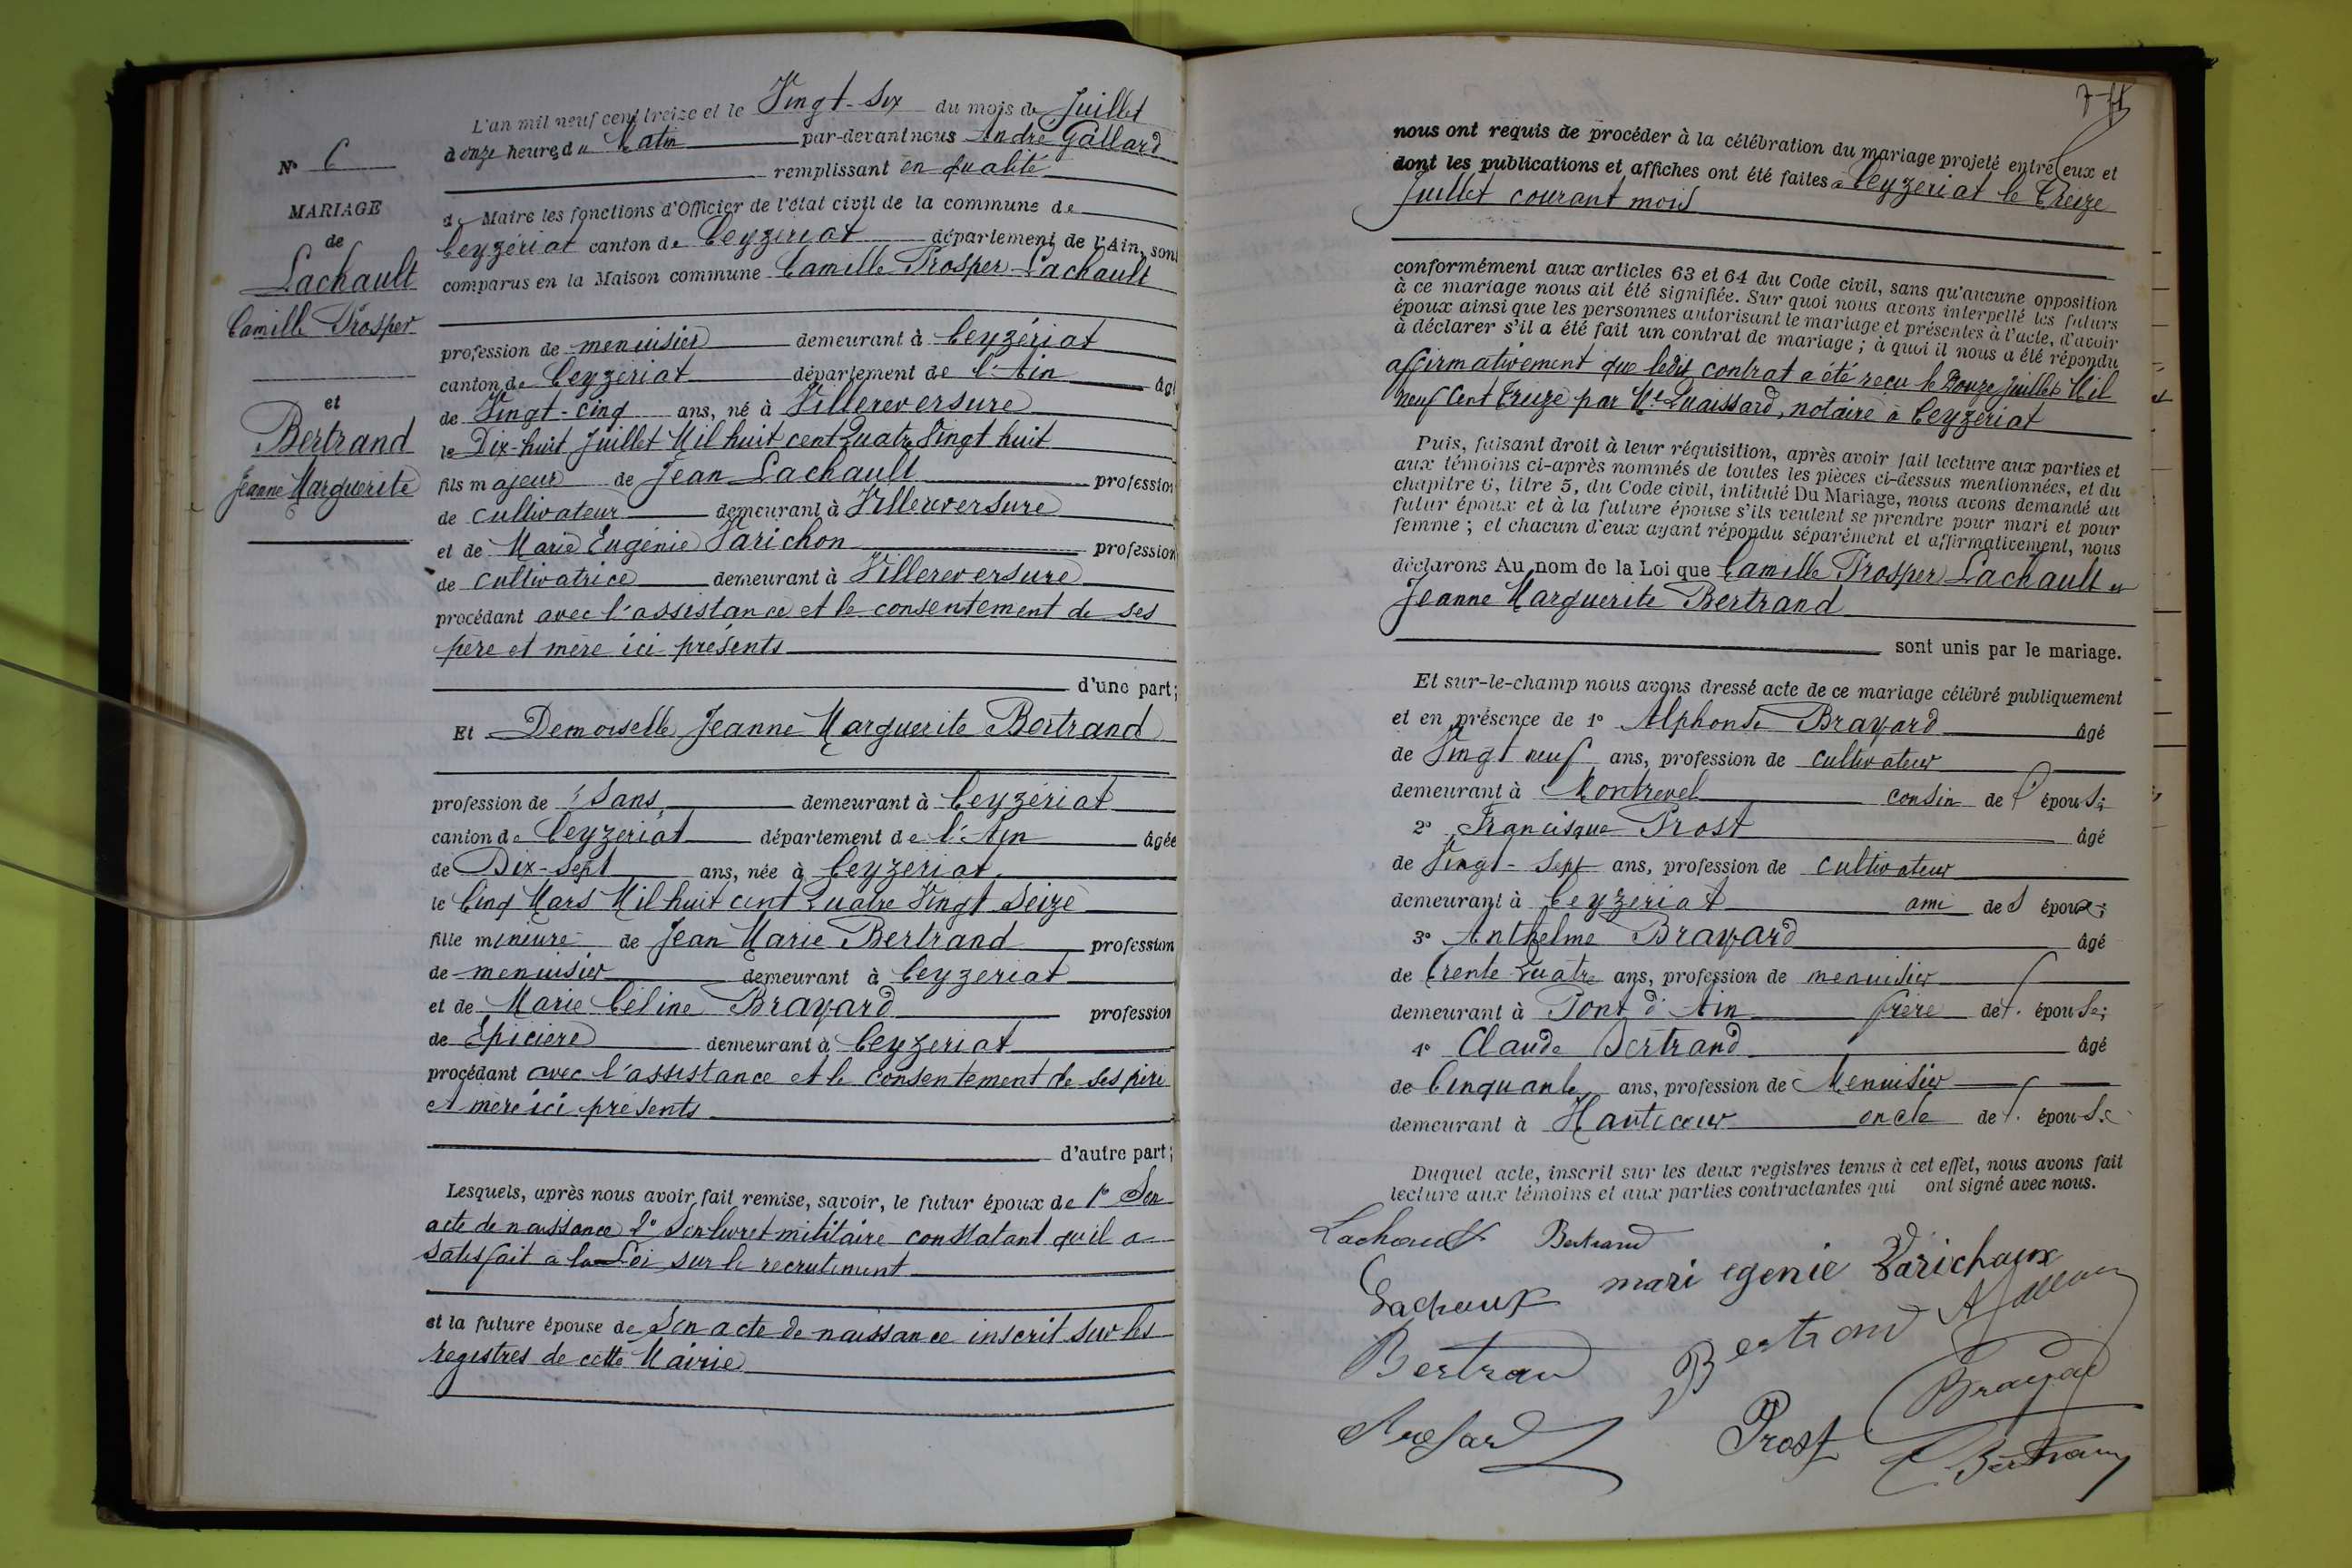 N° 6
MARIAGE
de
Lachault
Camille Prosper
et
Bertrand
Jeanne Marguerite
L'an mil neuf cent treize et le Vingt-Six du mois de Juillet
à onze heures du Matin par-devant nous André Gallard
remplissant en qualité
de Maire les fonctions d'Officier de l'état civil de la commune de
Ceyzériat canton de Ceyzériat département de l'Ain, sont
comparus en la Maison commune Camille Prosper Lachault
profession de menuisier demeurant à Ceyzériat
canton de Ceyzeriat département de l'Ain âgé
de Vingt-cinq ans, né à Villereversure
le Dix-huit Juillet Mil huit cent Quatre Vingt huit
fils majeur de Jean Lachault profession
de cultivateur demeurant à Villereversure
et de Marie Eugénie Varichon profession
de cultivatrice demeurant à Villereversure
procédant avec l'assistance et le consentement de ses
père et mère ici présents
d'une part;
Et Demoiselle Jeanne Marguerite Bertrand
profession de Sans demeurant à Ceyzériat
canton de Ceyzeriat département de l'Ain âgée
de Dix-Sept ans, née à Ceyzeriat
le Cinq Mars Mil huit cent Quatre Vingt Seize
fille mineure de Jean Marie Bertrand profession
de menuisier demeurant à Ceyzeriat
et de Marie Céline Brayard profession
de Epicière demeurant à Ceyzeriat
procédant avec l'assistance et le consentement de ses père
et mère ici présents
d'autre part;
Lesquels, après nous avoir fait remise, savoir, le futur époux de 1° Son
acte de naissance 2° Son livret militaire constatant qu'il a
satisfait à la Loi sur le recrutement
et la future épouse de Son acte de naissance inscrit sur les
registres de cette Mairie
nous ont requis de procéder à la célébration du mariage projeté entre eux et
dont les publications et affiches ont été faites à Ceyzeriat le Treize
Juillet courant mois
conformément aux articles 63 et 64 du Code civil, sans qu'aucune opposition
à ce mariage nous ait été signifiée. Sur quoi nous avons interpellé les futurs
époux ainsi que les personnes autorisant le mariage et présentes à l'acte, d'avoir
à déclarer s'il a été fait un contrat de mariage ; à quoi il nous a été répondu
affirmativement que ledit contrat a été reçu le Douze Juillet Mil
neuf Cent Treize par Me Quaissard, notaire à Ceyzeriat
Puis, faisant droit à leur réquisition, après avoir fait lecture aux parties et
aux témoins ci-après nommés de toutes les pièces ci-dessus mentionnées, et du
chapitre 6, titre 5, du Code civil, intitulé Du Mariage, nous avons demandé au
futur époux et à la future épouse s'ils veulent se prendre pour mari et pour
femme ; et chacun d'eux ayant répondu séparément et affirmativement, nous
déclarons Au nom de la Loi que Camille Prosper Lachault et
Jeanne Marguerite Bertrand
sont unis par le mariage.
Et sur-le-champ nous avons dressé acte de ce mariage célébré publiquement
et en présence de 1° Alphonse Brayard âgé
de Vingt neuf ans, profession de cultivateur
demeurant à Montrevel cousin de l' épouse;
2° Francisque Prost âgé
de Vingt-Sept ans, profession de cultivateur
demeurant à Ceyzériat ami des époux;
3° Anthelme Brayard âgé
de Trente Quatre ans, profession de menuisier
demeurant à Pont d'Ain frère de l' épouse;
4° Claude Bertrand âgé
de Cinquante ans, profession de Menuisier
demeurant à Hautecour oncle de l' épouse
Duquel acte, inscrit sur les deux registres tenus à cet effet, nous avons fait
lecture aux témoins et aux parties contractantes qui ont signé avec nous.
Lachault Bertrand
Lachaux mari egenie Varichaux
Bertran Bertrand
Brayard
Prost
Bertrand